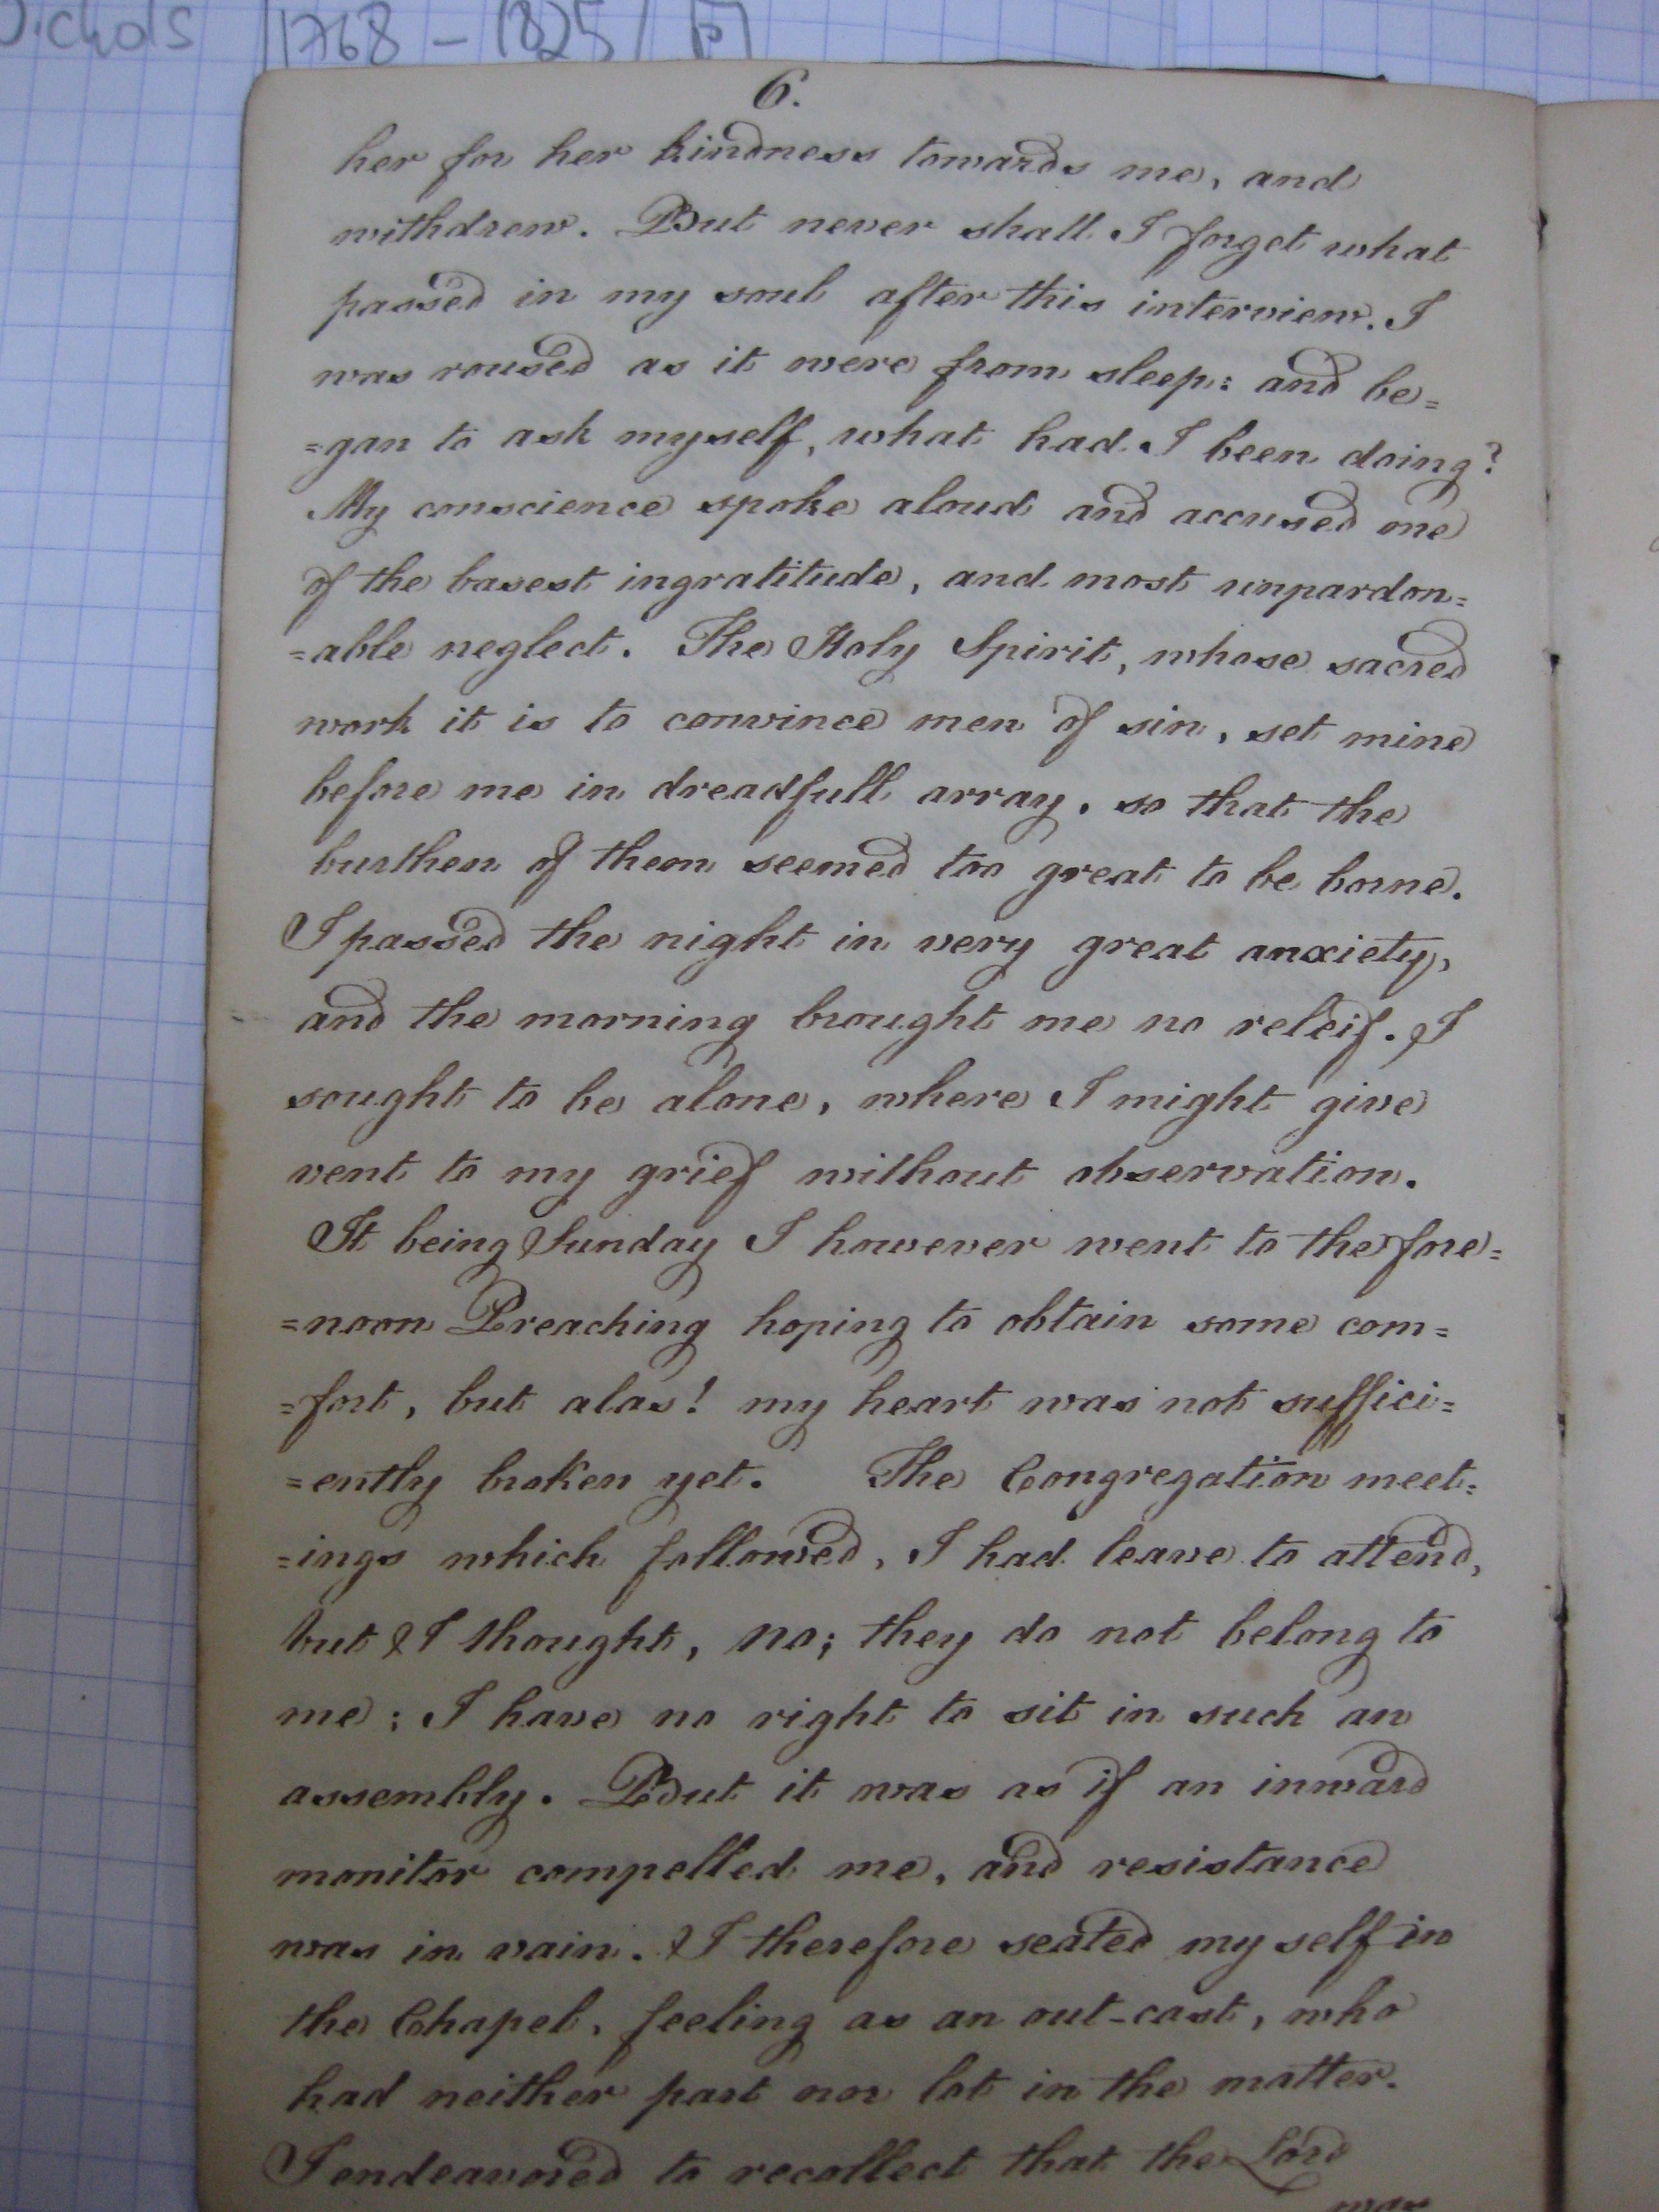 Nichols 1768 - 1825
6.
her for her kindness towards me, and
withdrew. But never shall I forget what
passed in my soul after this interview. I
was roused as it were from sleep: and be=
=gan to ask myself, what had I been doing?
My conscience spoke aloud and accused me
of the basest ingratitude, and most unpardon=
=able neglect. The Holy Spirit, whose sacred
work it is to convince men of sin, set mine
before me in dreadfull array, so that the
burthen of them seemed too great to be borne.
I passed the night in very great anxiety,
and the morning brought me no releif. I
sought to be alone, where I might give
vent to my grief without observation.
It being Sunday I however went to the fore=
=noon Preaching hoping to obtain some com=
=fort, but alas! my heart was not suffici=
=ently broken yet. The Congregation meet=
=ings which followed, I had leave to attend,
but I thought, no; they do not belong to
me; I have no right to sit in such an
assembly. But it was as if an inward
monitor compelled me, and resistance
was in vain. I therefore seated my self in
the Chapel, feeling as an out-cast, who
had neither part nor lot in the matter.
I endeavored to recollect that the Lord